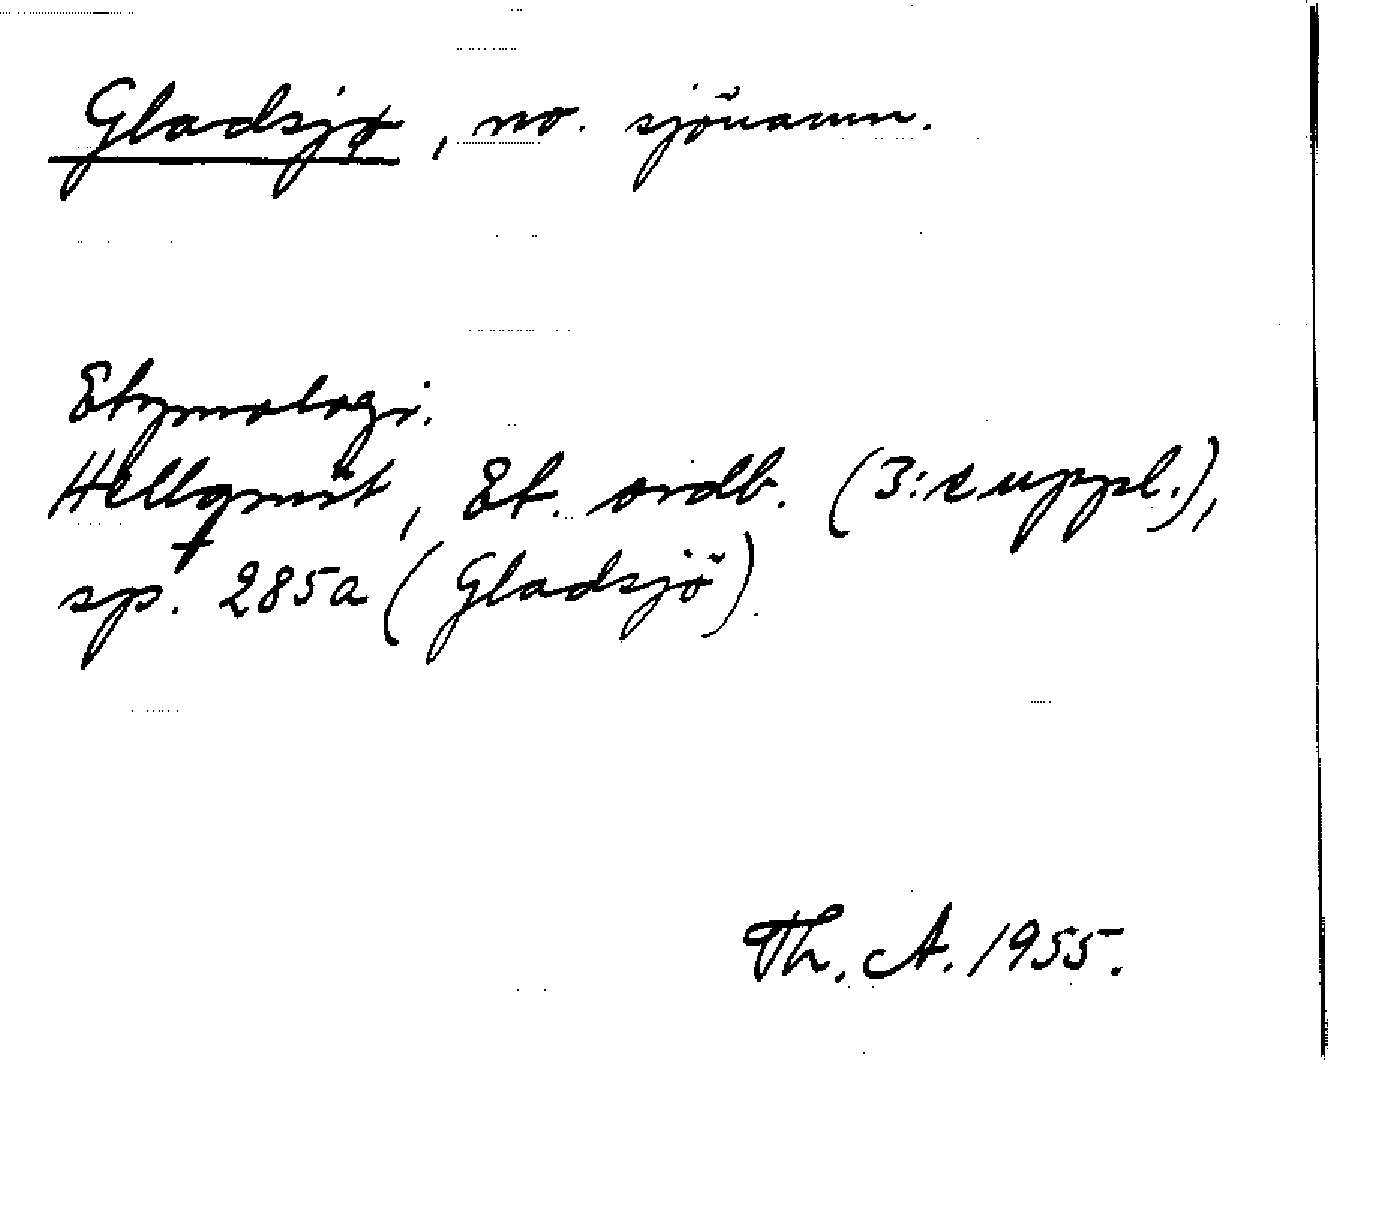 Gladsjø, no. sjönamn.
Etymologi.
Hellquist, Et. ordb. (3:e uppl.),
sp. 285a (Gladsjö).
Th. A. 1955.